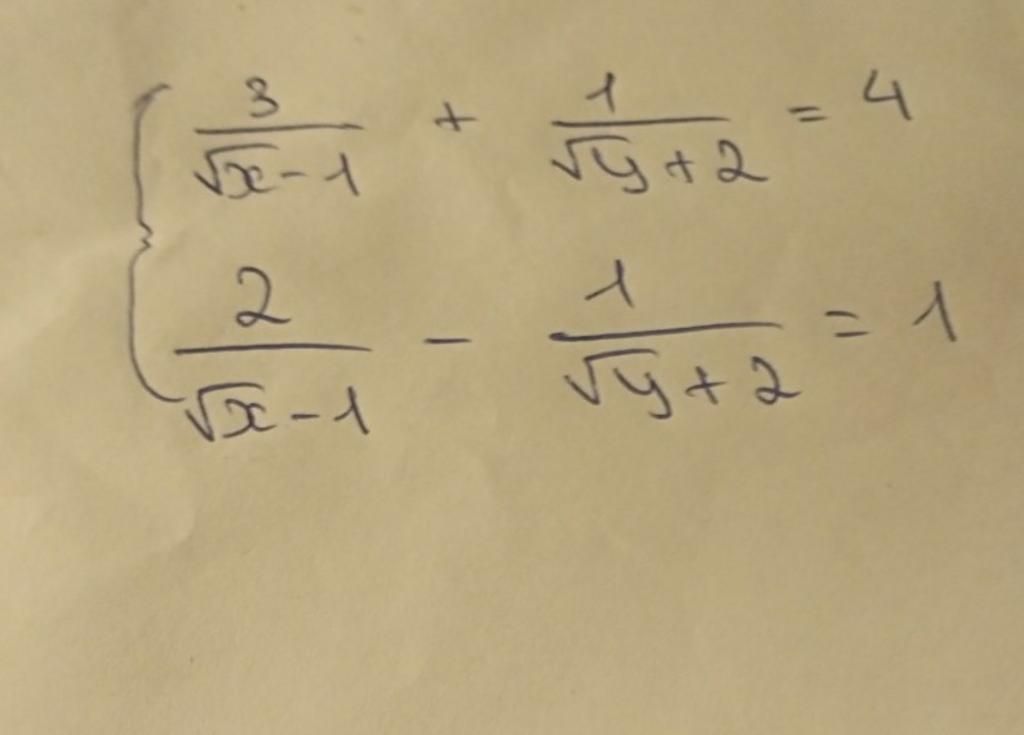 { 3/(√x-1) + 1/(√y+2) = 4
2/(√x-1) - 1/(√y+2) = 1